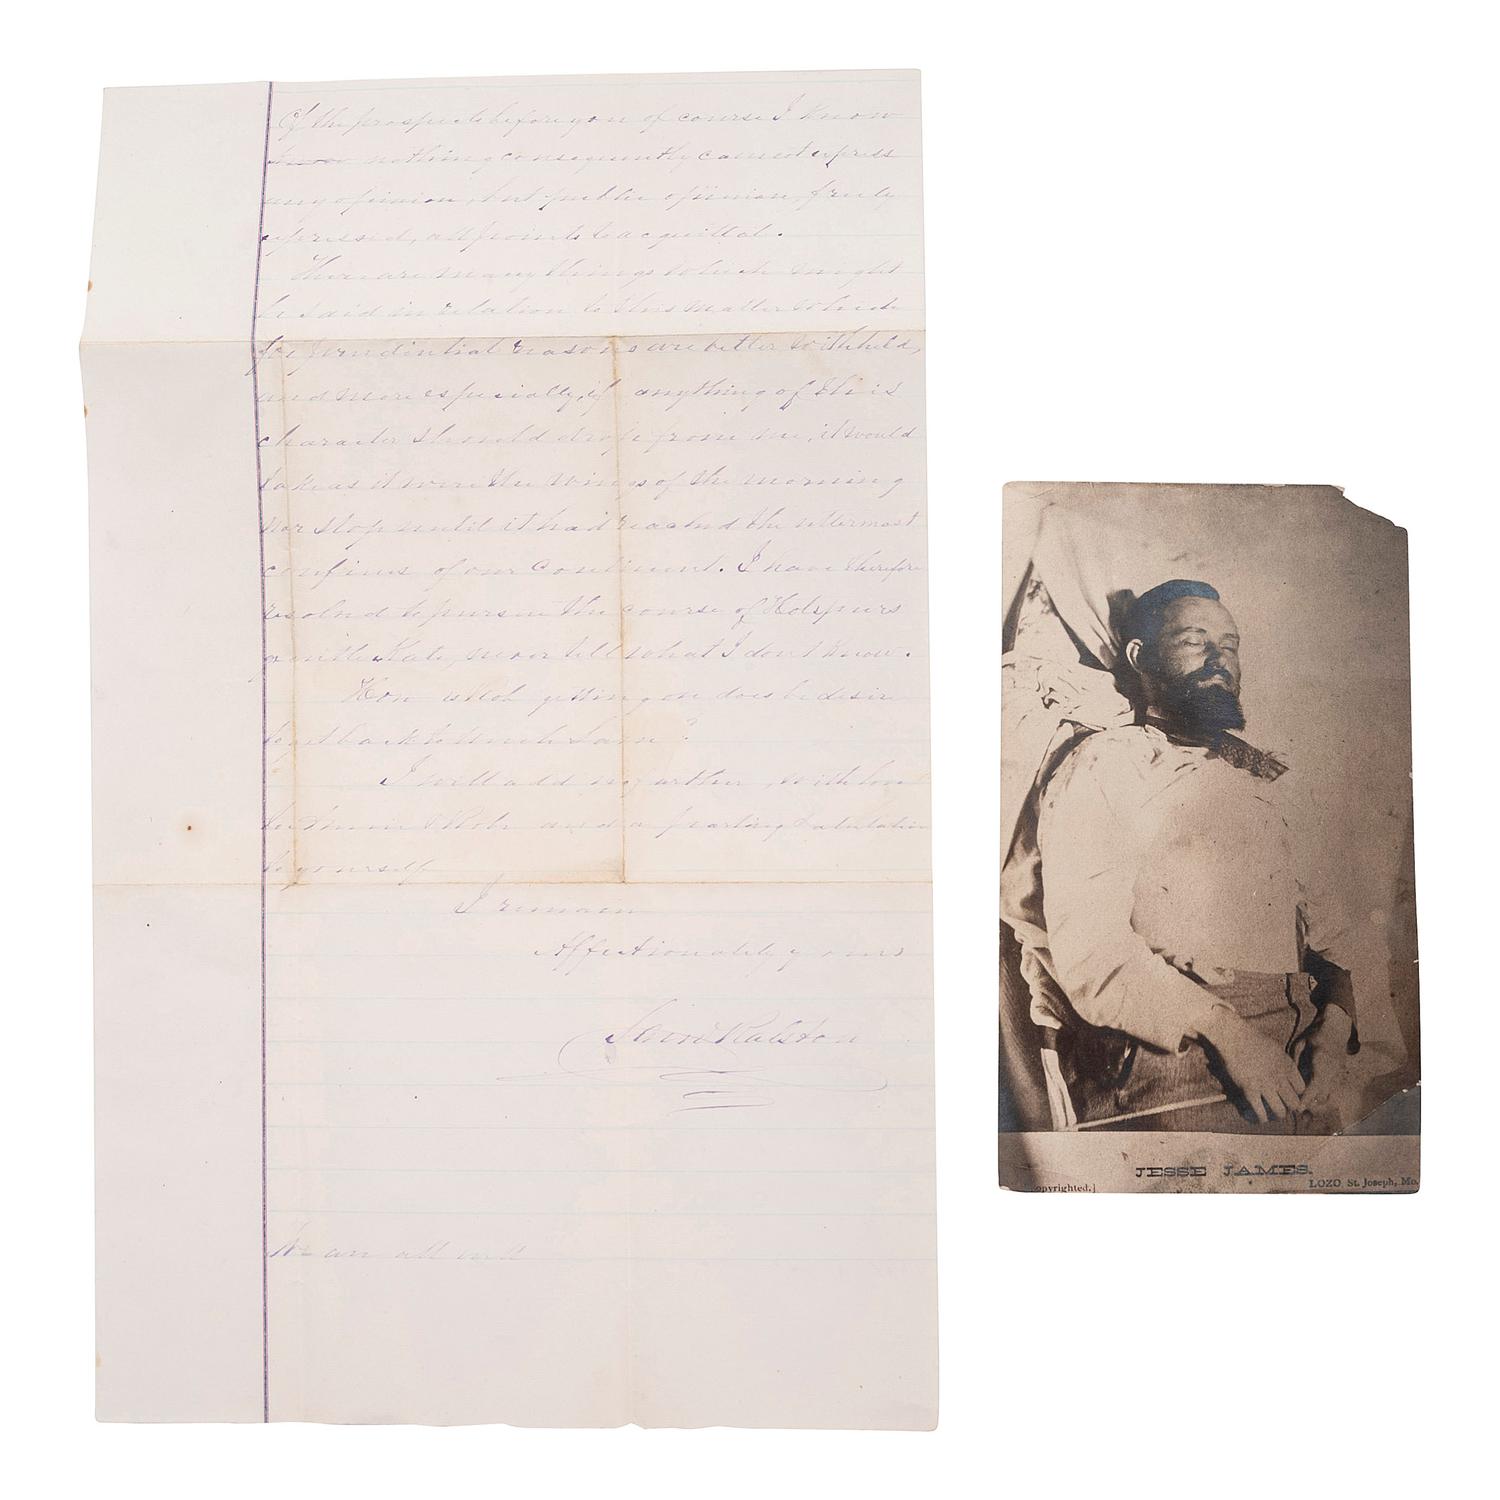 Of the prospects before you of course I know
know nothing consequently cannot express
any opinion, but public opinion, freely
expressed, all points to acquittal.
There are many things which might
be said in relation to this matter which
for prudential reasons are better withheld,
and more especially, if anything of this
character should drop from me, it would
take as it were the wings of the morning
nor stop until it had reached the uttermost
confines of our Continent. I have therefore
resolved to pursue the course of Hotspurs
gentle Kate, never tell what I dont know.
How is Rob getting on does he desire
to get back to Uncle Sam?
I will add no further, with love
to Annie & Rob and a parting salutation
to yourself
I remain
Affectionately yours
Ralston
We are all well
JESSE JAMES.
opyrighted.]
LOZO, St. Joseph, Mo.